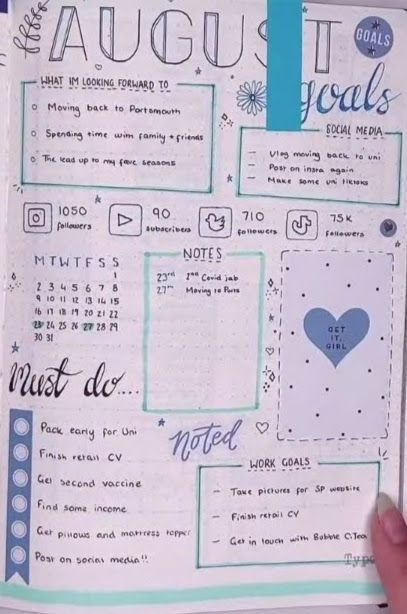 AUGUST
GOALS
goals
WHAT IM LOOKING FORWARD TO
Moving back to Portsmouth
Spending time with family + friends
The lead up to my fave seasons
SOCIAL MEDIA
- Vlog moving back to uni
- Post on insta again
- Make some uni tiktoks
1050
followers
90
subscribers
710
followers
75K
followers
M T W T F S S
1
2 3 4 5 6 7 8
9 10 11 12 13 14 15
16 17 18 19 20 21 22
23 24 25 26 27 28 29
30 31
NOTES
23rd 2nd Covid jab
27th Moving to
GET
IT,
GIRL
Must do....
Pack early for Uni
Finish retail CV
Get second vaccine
Find some income
Get pillows and mattress topper
Post on social media!!
Noted
WORK GOALS
- Take pictures for SP website
- Finish retail CV
- Get in touch with Bubble C.Tea